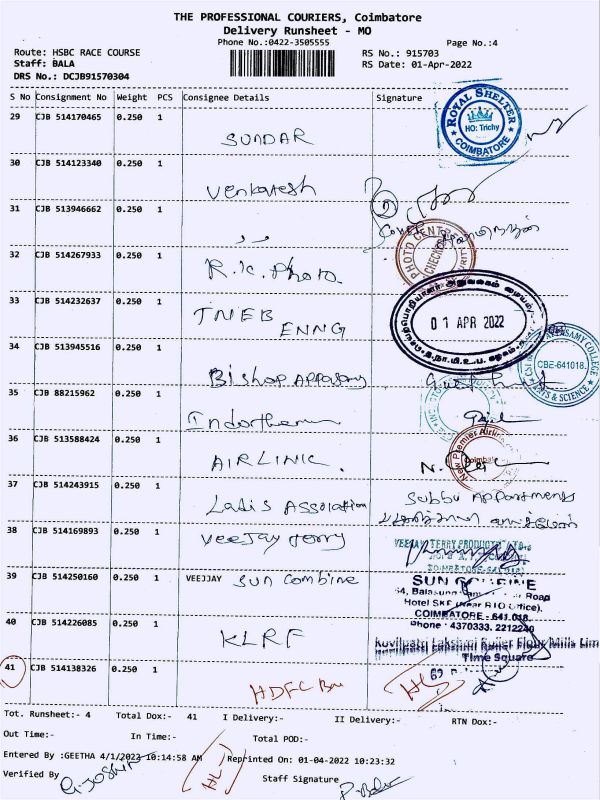 THE PROFESSIONAL COURIERS, Coimbatore
Delivery Runsheet - MO
Phone No.:0422-3505555
Page No.:4
Route: HSBC RACE COURSE
RS No.: 915703
Staff: BALA
RS Date: 01-Apr-2022
DRS No.: DCJB91570304
S No Consignment No Weight PCS Consignee Details Signature
29 CJB 514170465 0.250 1 SUNDAR
ROYAL SHELTER
HO: Trichy
COIMBATORE
30 CJB 514123340 0.250 1 Venkatesh
31 CJB 513946662 0.250 1 ,, ,,
32 CJB 514267933 0.250 1 R.K. Photo.
PHOTO CENTRE
CHECKED
33 CJB 514232637 0.250 1 TNEB ENNG
01 APR 2022
34 CJB 513945516 0.250 1 Bishop Appasamy
CBE-641018.
ARTS & SCIENCE
35 CJB 88215962 0.250 1
36 CJB 513588424 0.250 1 AIRLINK.
New Premier Airlink
Coimbatore
37 CJB 514243915 0.250 1 Ladis Assoiation
Subbu Appartments
38 CJB 514169893 0.250 1 Veejay Terry
VEEJAY TERRY PRODUCTS LTD.,
39 CJB 514250160 0.250 1 VEEJJAY Sun Combine
SUN COMBINE
54, Balasundaram Road
Hotel SKP (Near RTO Office),
COIMBATORE - 641 018.
Phone : 4370333, 2212240
40 CJB 514226085 0.250 1 KLRF
Kovilpatti Lakshmi Roller Flour Mills Lim
Time Square
41 CJB 514138326 0.250 1 HDFC Ban
Tot. Runsheet:- 4 Total Dox:- 41 I Delivery:- II Delivery:- RTN Dox:-
Out Time:- In Time:- Total POD:-
Entered By :GEETHA 4/1/2022 10:14:58 AM Reprinted On: 01-04-2022 10:23:32
Verified By
Staff Signature